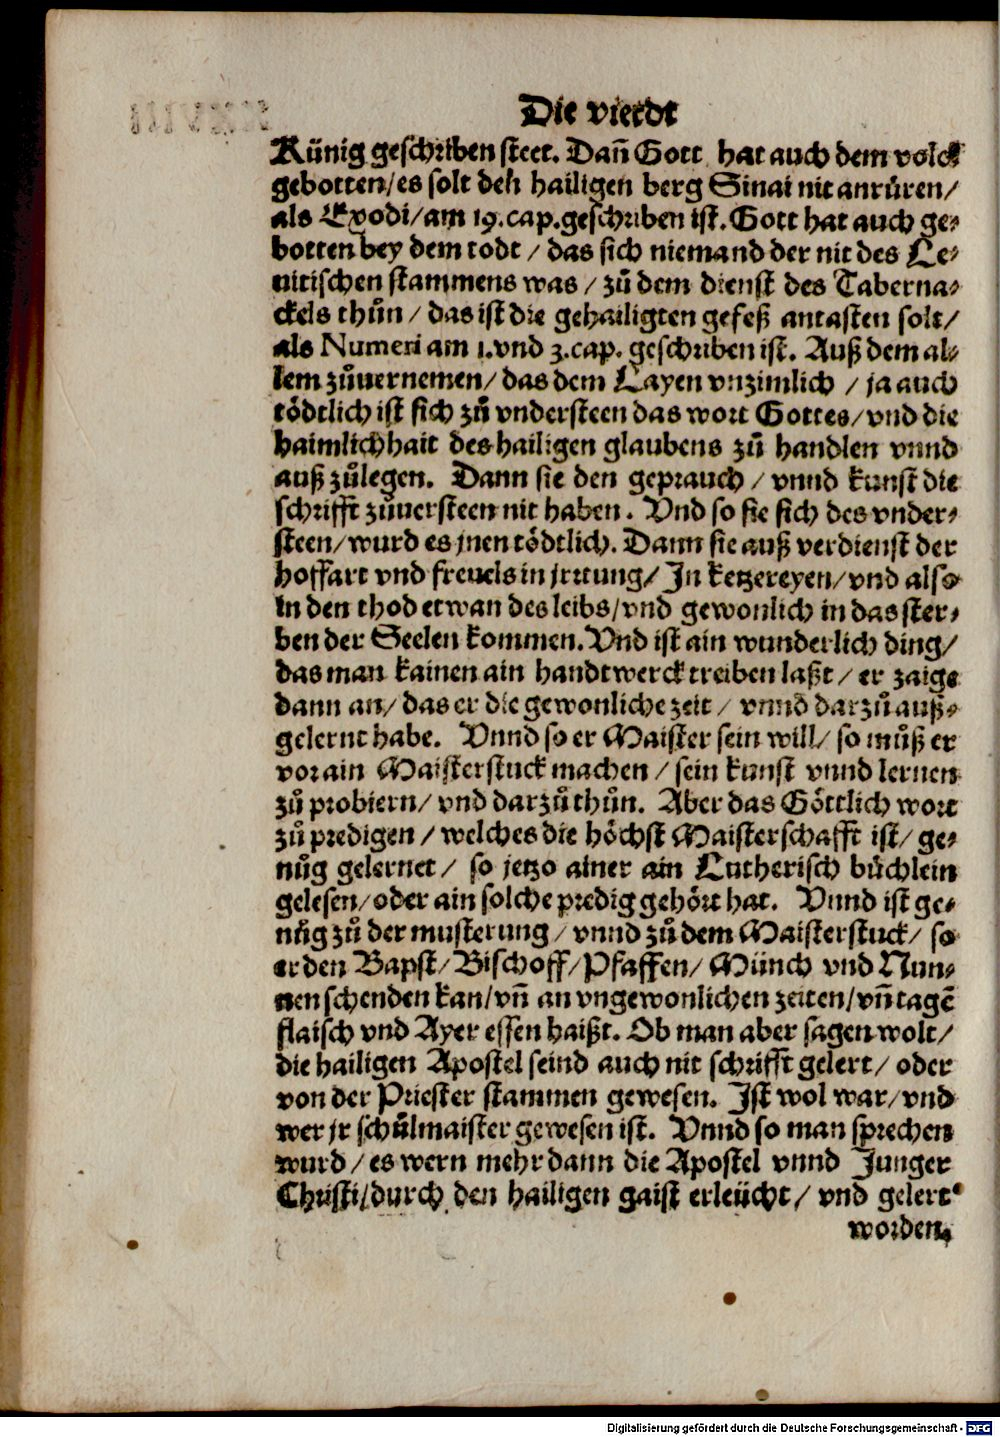 Die vierdt
Künig geschriben steet. Dañ Gott hat auch dem volck
gebotten/ es solt den hailigen berg Sinai nit anrüren/
als Exodi/ am 19. cap. geschriben ist. Gott hat auch ge⸗
botten bey dem todt / das sich niemand der nit des Le⸗
uitischen stammens was / zů dem dienst des Taberna⸗
ckels thůn / das ist die gehailigten gefeß antasten solt/
als Numeri am 1. vnd 3. cap. geschriben ist. Auß dem al⸗
lem zůuernemen/ das dem Layen vnzimlich / ja auch
tödtlich ist sich zů vndersteen das wort Gottes/ vnd die
haimlichhait des hailigen glaubens zů handlen vnnd
auß zůlegen. Dann sie den geprauch / vnnd kunst die
schrifft zůuersteen nit haben. Vnd so sie sich des vnder⸗
steen/ wurd es jnen tödtlich. Dann sie auß verdienst der
hoffart vnd freuels in jrrung/ In ketzereyen/ vnd also
in den thod etwan des leibs/ vnd gewonlich in das ster⸗
ben der Seelen kommen. Vnd ist ain wunderlich ding/
das man kainen ain handtwerck treiben laßt / er zaige
dann an/ das er die gewonliche zeit / vnnd darzů auß⸗
gelernt habe. Vnnd so er Maister sein will/ so můß er
vor ain Maisterstuck machen / sein kunst vnnd lernen
zů probiern/ vnd darzů thůn. Aber das Göttlich wort
zů predigen / welches die höchst Maisterschafft ist/ ge⸗
nůg gelernet / so jetzo ainer ain Lutherisch bůchlein
gelesen/ oder ain solche predig gehört hat. Vnnd ist ge⸗
nůg zů der musterung / vnnd zů dem Maisterstuck/ so
er den Bapst/ Bischoff/ Pfaffen/ Münch vnd Nun⸗
nen schenden kan/ vñ an vngewonlichen zeiten/ vñ tagē
flaisch vnd Ayer essen haißt. Ob man aber sagen wolt/
die hailigen Apostel seind auch nit schrifft gelert/ oder
von der Priester stammen gewesen. Ist wol war/ vnd
wer jr schůlmaister gewesen ist. Vnnd so man sprechen
wurd / es wern mehr dann die Apostel vnnd Junger
Christi/ durch den hailigen gaist erleücht/ vnd gelert
worden,
Digitalisierung gefördert durch die Deutsche Forschungsgemeinschaft - DFG